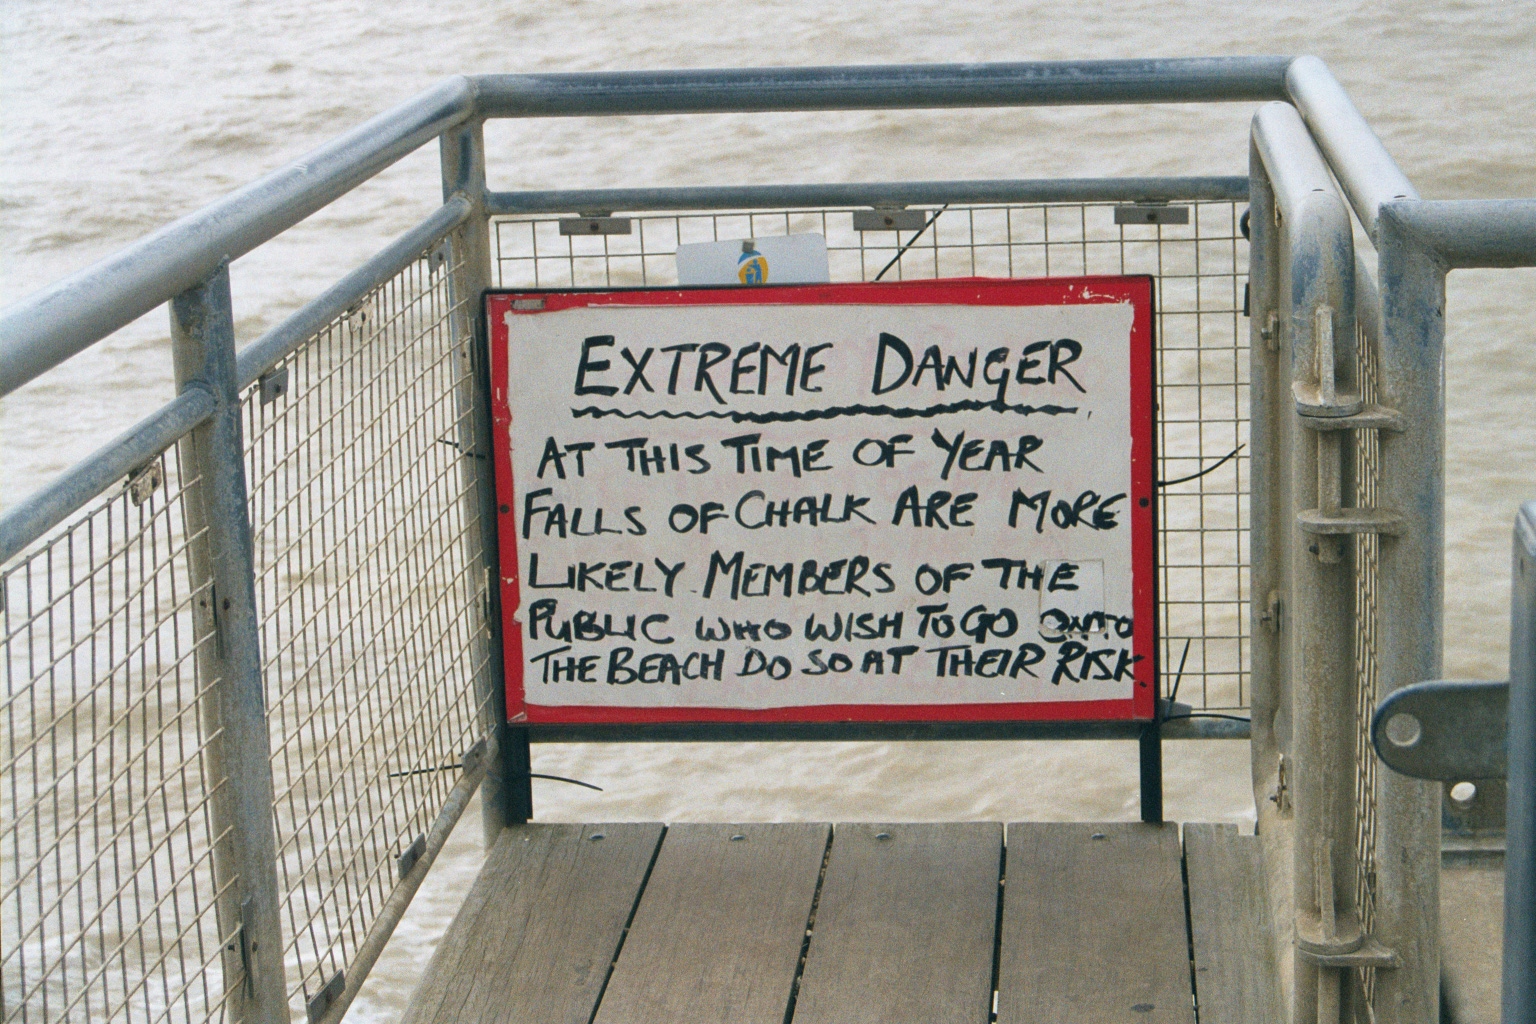 EXTREME DANGER
AT THIS TIME OF YEAR
FALLS OF CHALK ARE MORE
LIKELY. MEMBERS OF THE
PUBLIC WHO WISH TO GO ONTO
THE BEACH DO SO AT THEIR RISK.